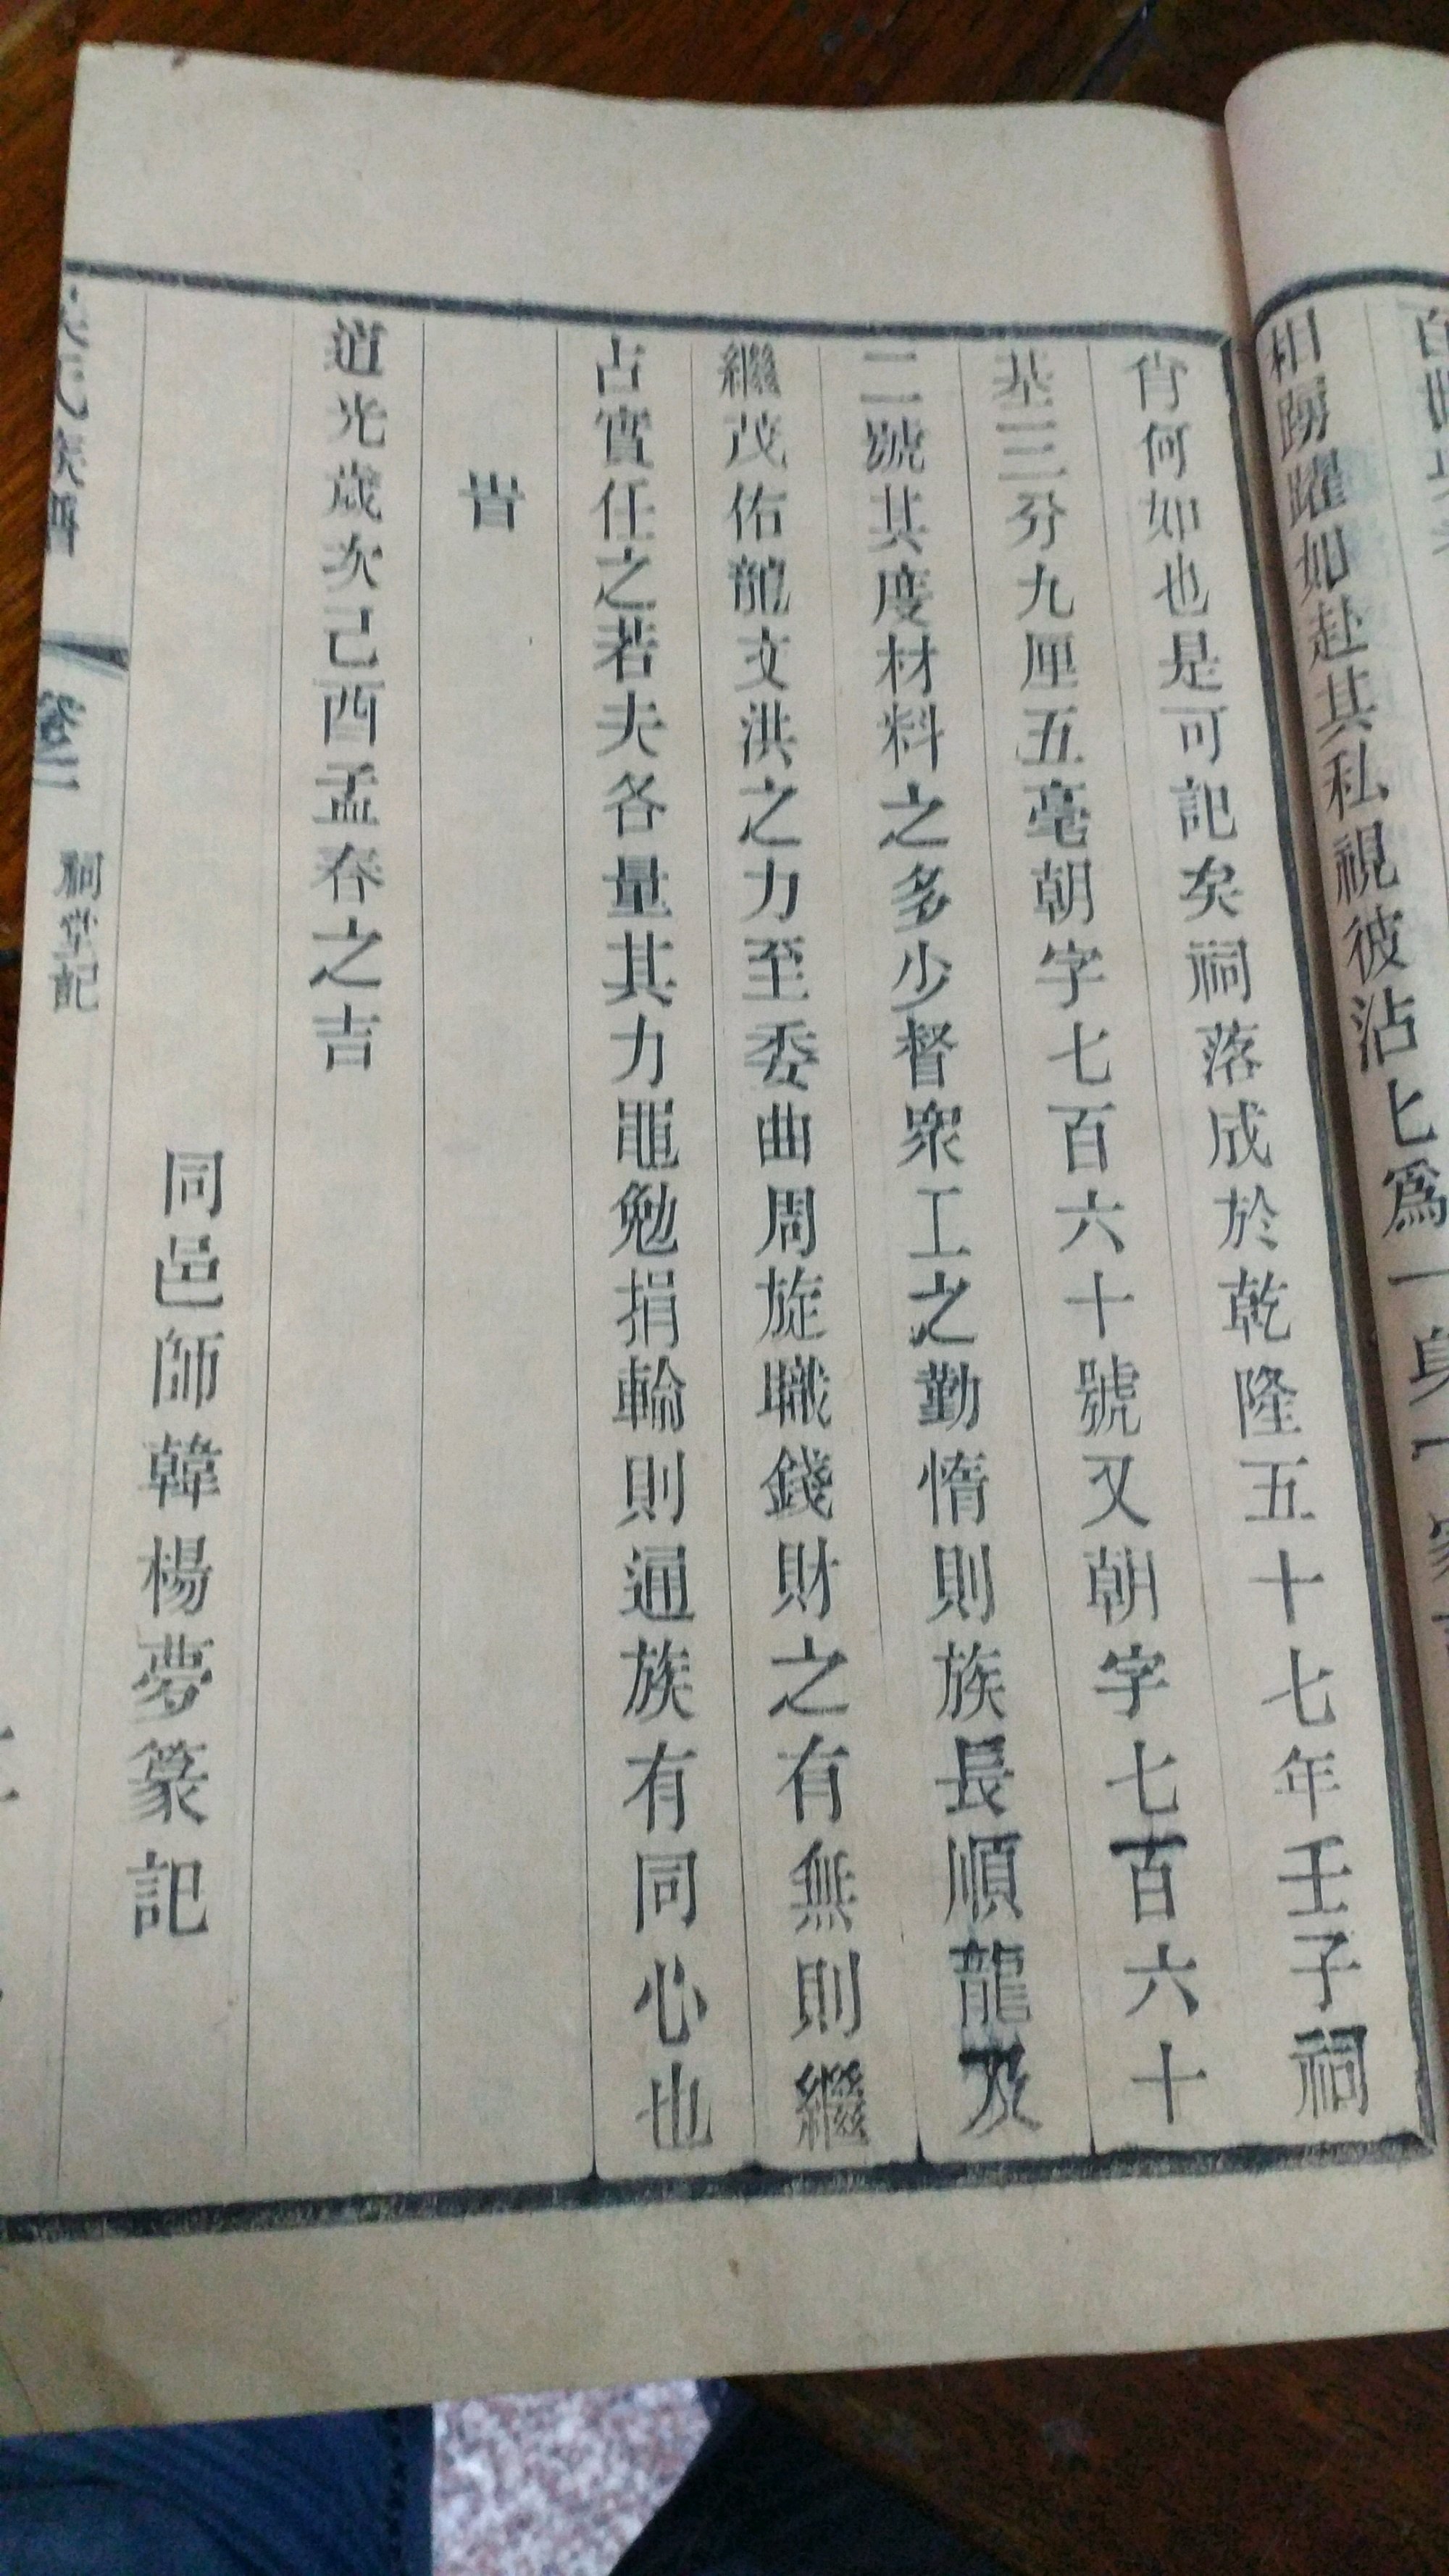 相踴躍如赴其私視彼沾匕爲一身一家
肯何如也是可記矣祠落成於乾隆五十七年壬子祠
基三分九厘五毫朝字七百六十號又朝字七百六十
二號其度材料之多少督衆工之勤惰則族長順龍及
繼茂佑龍文洪之力至委曲周旋職錢財之有無則繼
占實任之若夫各量其力黽勉捐輸則通族有同心也
旹
道光歲次己酉孟春之吉
同邑師韓楊夢篆記
氏族譜 卷三 祠堂記